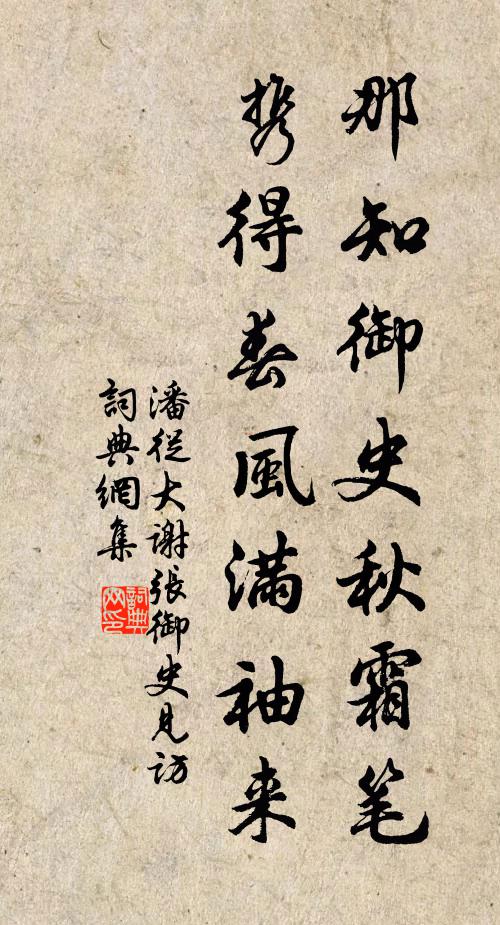 那知御史秋霜笔
携得春風满袖来
潘從大謝張御史見访
詞典網集
詞典网印